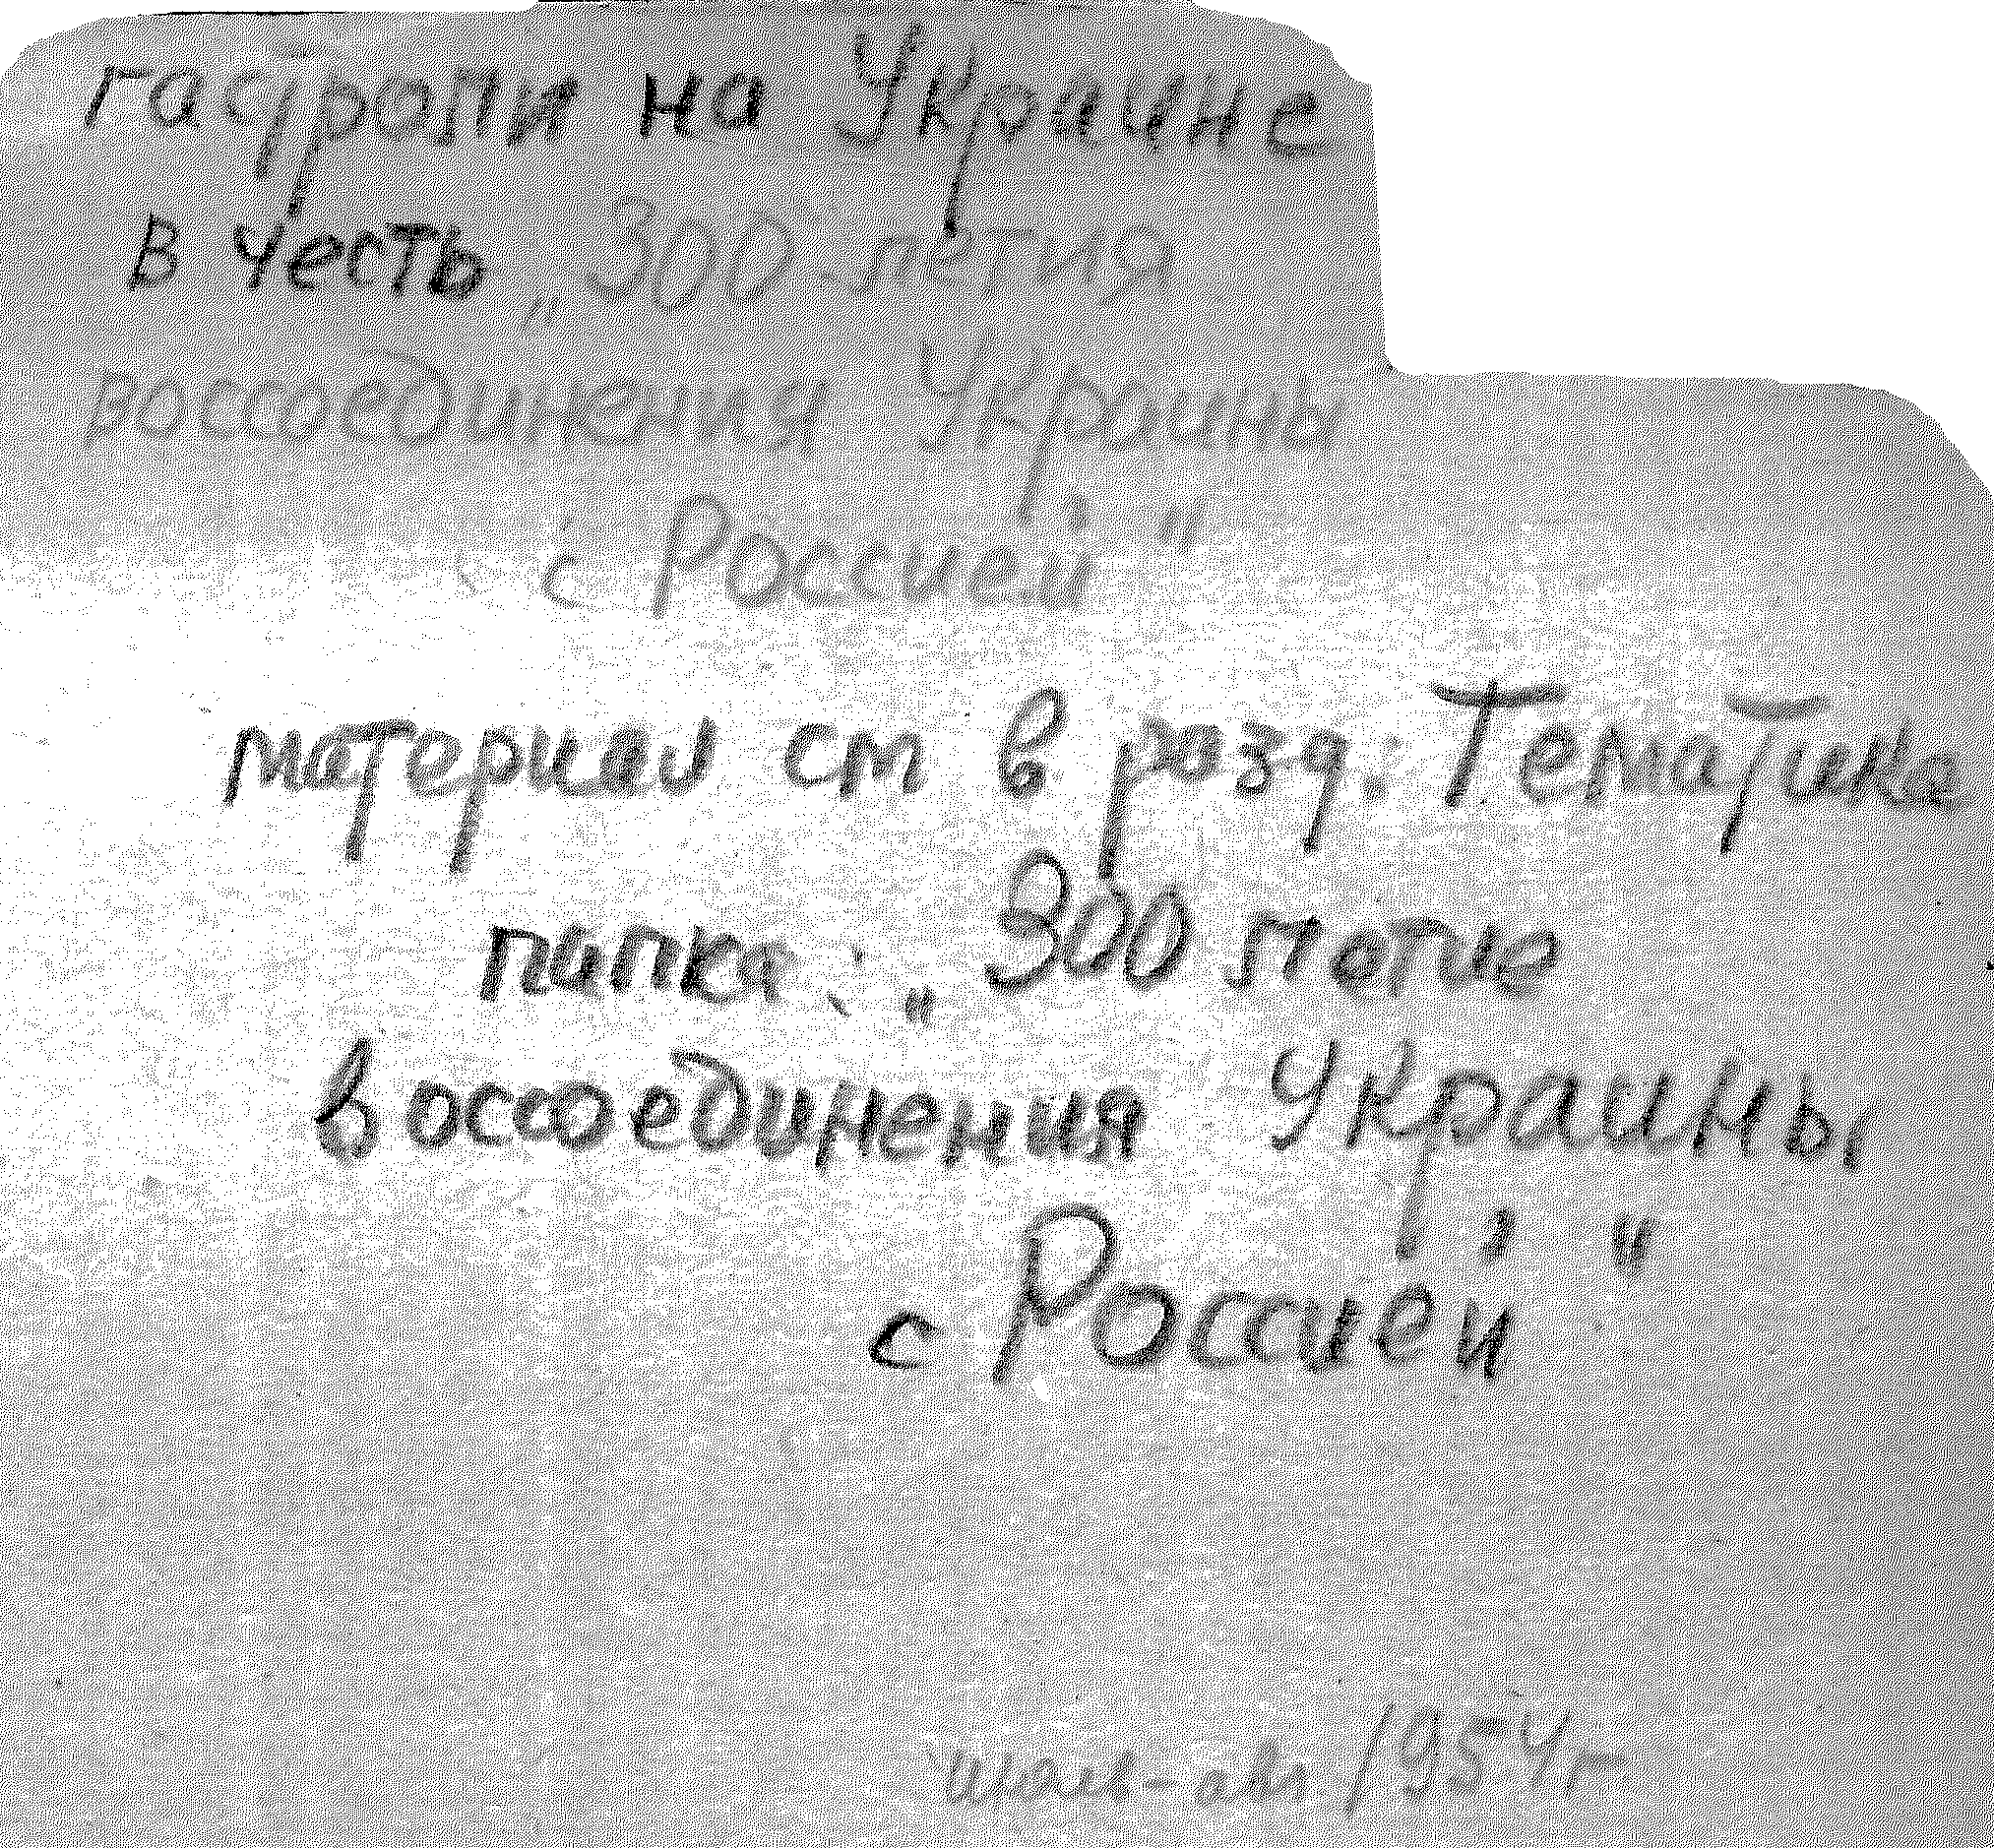 гастроли на Украине
в честь „300-летия
воссоединения Украины
с Россией"
материал см в разд: Тематика
папка: „300 летие
воссоединения Украины
с Россией"
1954